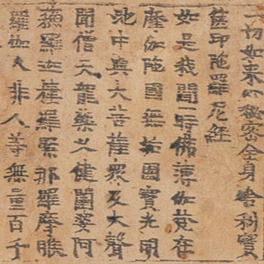 一切如來心祕密全身舍利寶
篋印陀羅尼經
如是我聞一時佛薄伽梵在
摩伽陀國無垢園寶光明
池中與大菩薩衆及大聲
聞僧天龍藥叉健闥婆阿
蘇羅迦樓羅緊那羅摩睺
羅伽人非人等無量百千